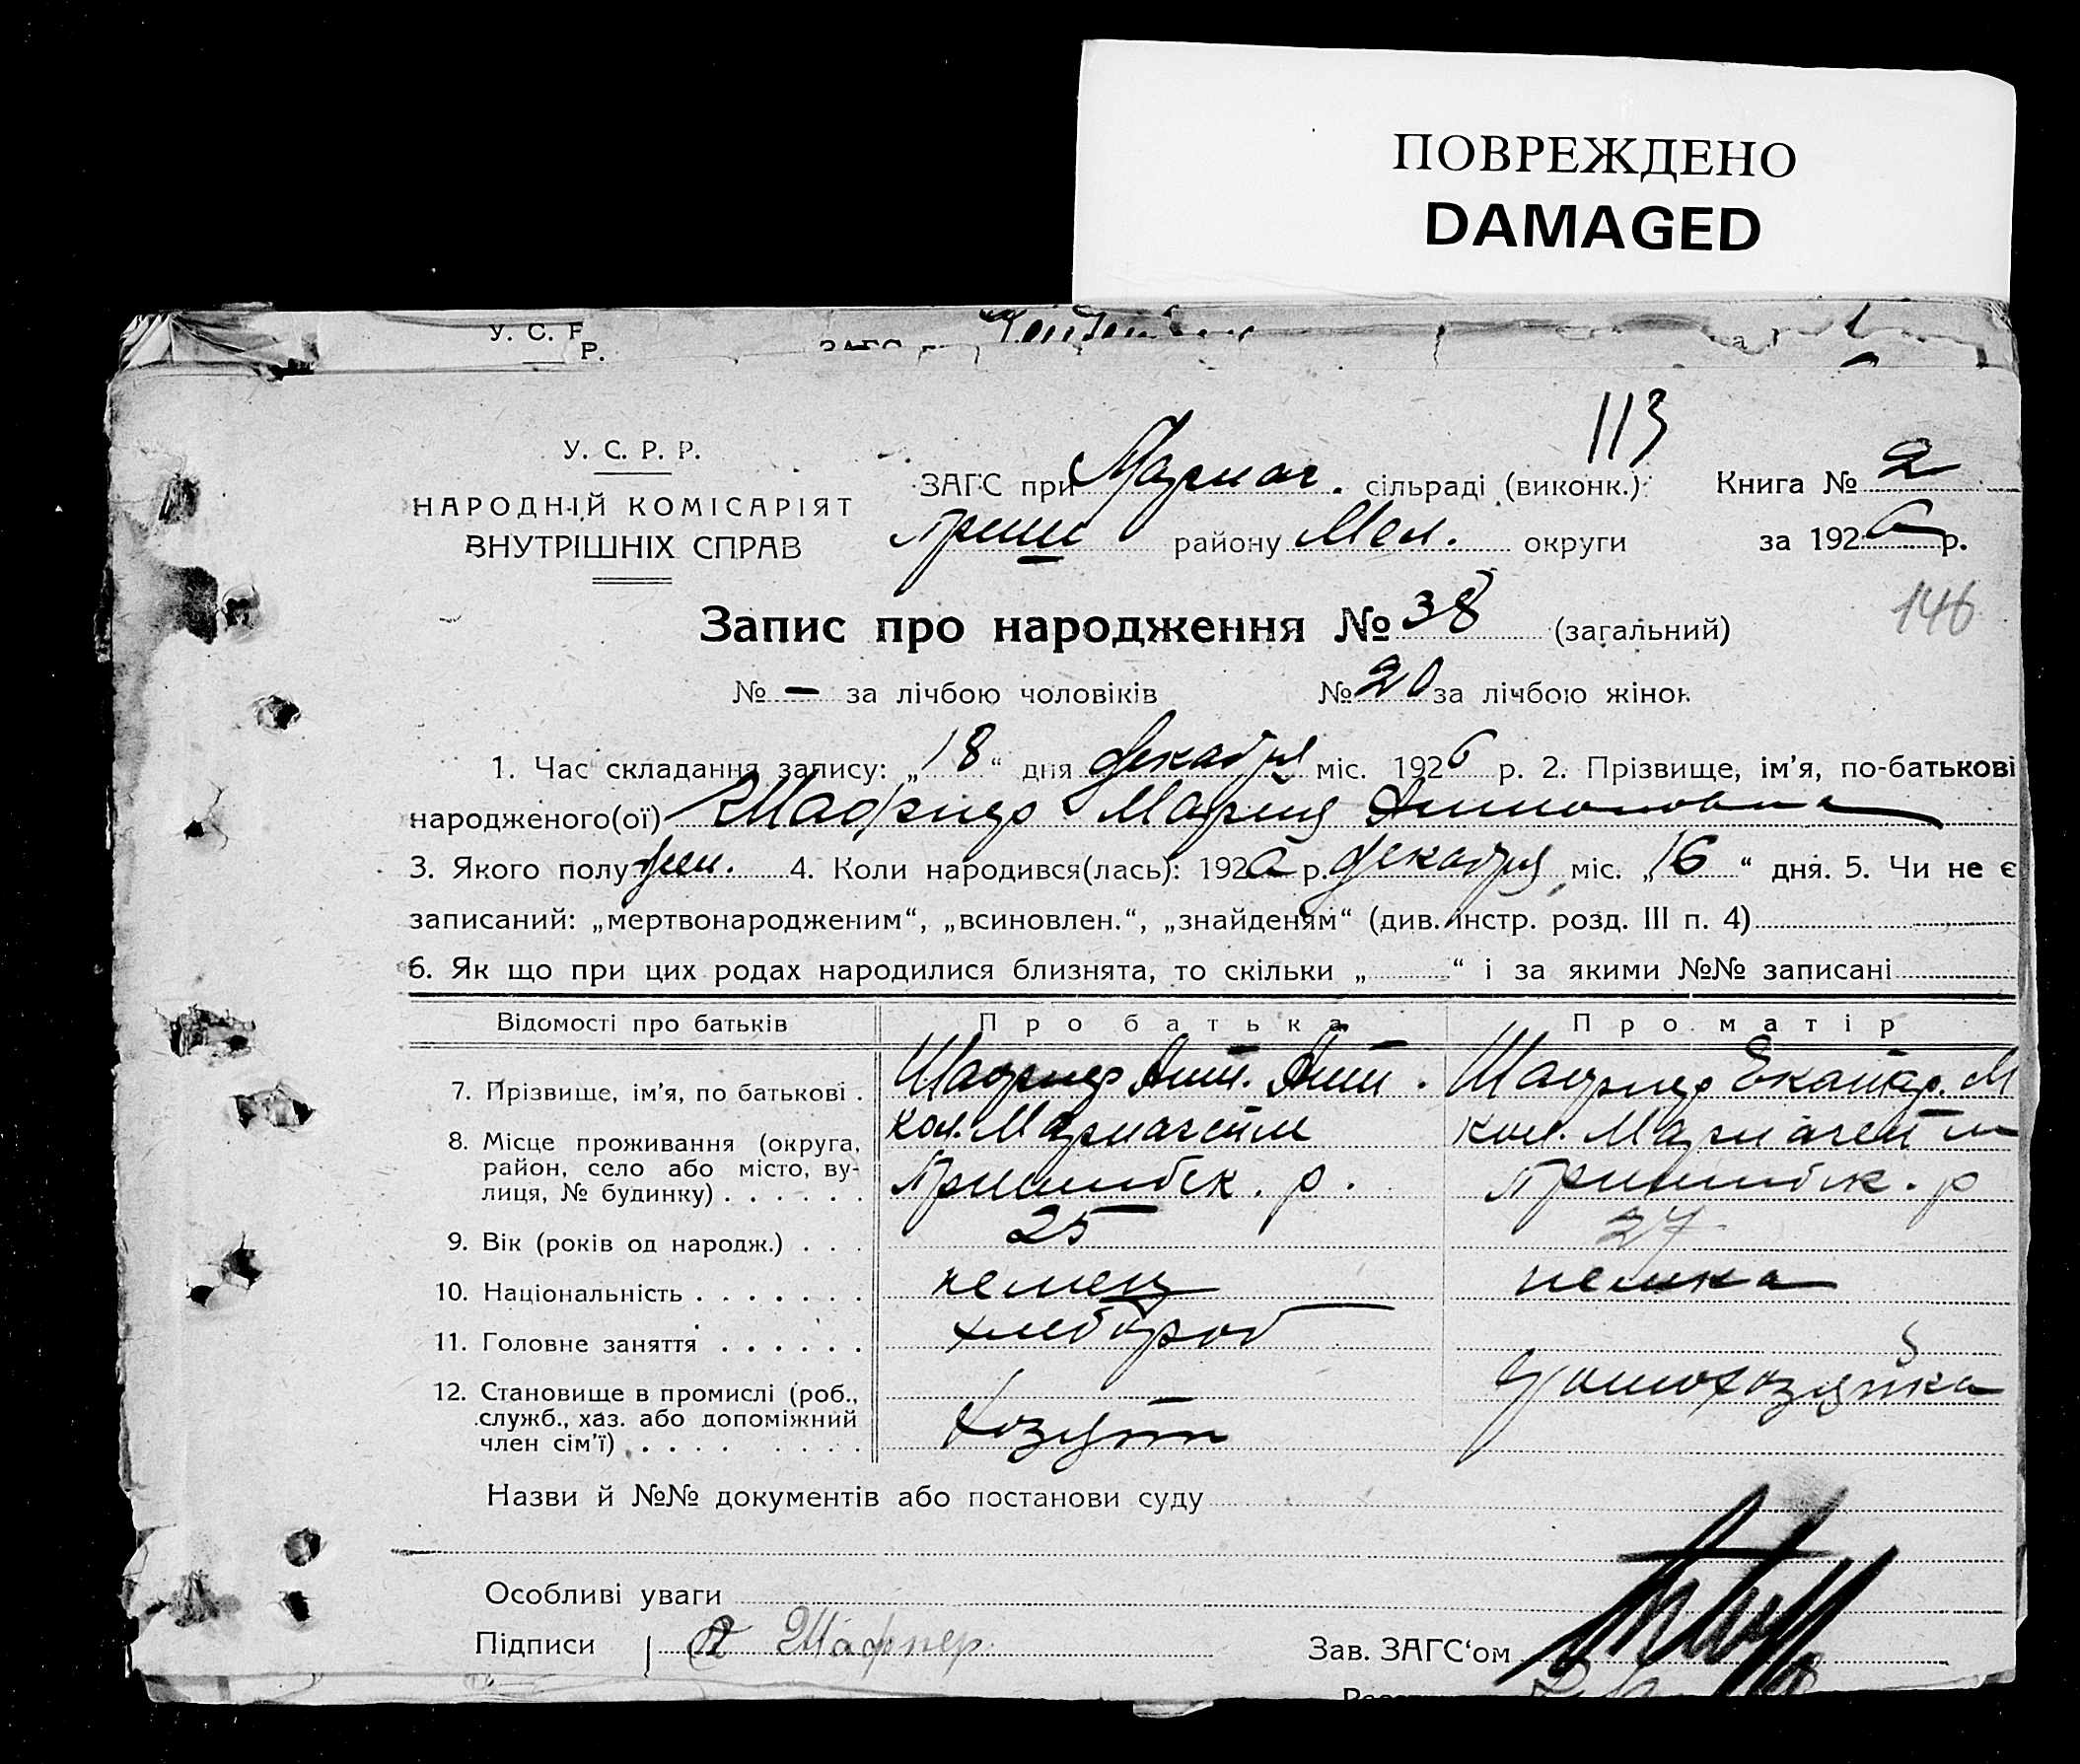 ПОВРЕЖДЕНО
DAMAGED
У. С.
Р.
113
У. С. Р. Р.
НАРОДНІЙ КОМІСАРІЯТ
ВНУТРІШНІХ СПРАВ
ЗАГС при Мариаг. сільраді (виконк.) Книга № 2
Приши району Мел. округи за 1926 р.
146
Запис про народження № 38 (загальний)
№ — за лічбою чоловіків № 20 за лічбою жінок
1. Час складання запису: „18“ дня декабря міс. 1926 р. 2. Прізвище, ім'я, по-батькові
народженого(ої) Шафнер Мария Антоновна
3. Якого полу жен. 4. Коли народився(лась): 1926 р. декабря міс. „16“ дня. 5. Чи не є
записаний: „мертвонародженим“, „всиновлен.“, „знайденям“ (див. інстр. розд. III п. 4)
6. Як що при цих родах народилися близнята, то скільки „ “ і за якими №№ записані
Відомості про батьків Про батька Про матір
7. Прізвище, ім'я, по батькові . Шафнер Ант. Ант. Шафнер Екатер. М
8. Місце проживання (округа, кол. Мариагейм кол. Мариагейм
район, село або місто, ву- Пришибск. р. Пришибск. р
лиця, № будинку) . . . . . .
9. Вік (років од народж.) . . . 25 27
10. Національність . . . . . . . немец немка
11. Головне заняття . . . . . . хлебороб
12. Становище в промислі (роб., домохозяйка
служб., хаз. або допоміжний
член сім'ї) . . . . хозяин
Назви й №№ документів або постанови суду
Особливі уваги
Підписи А Шафнер
Зав. ЗАГС'ом